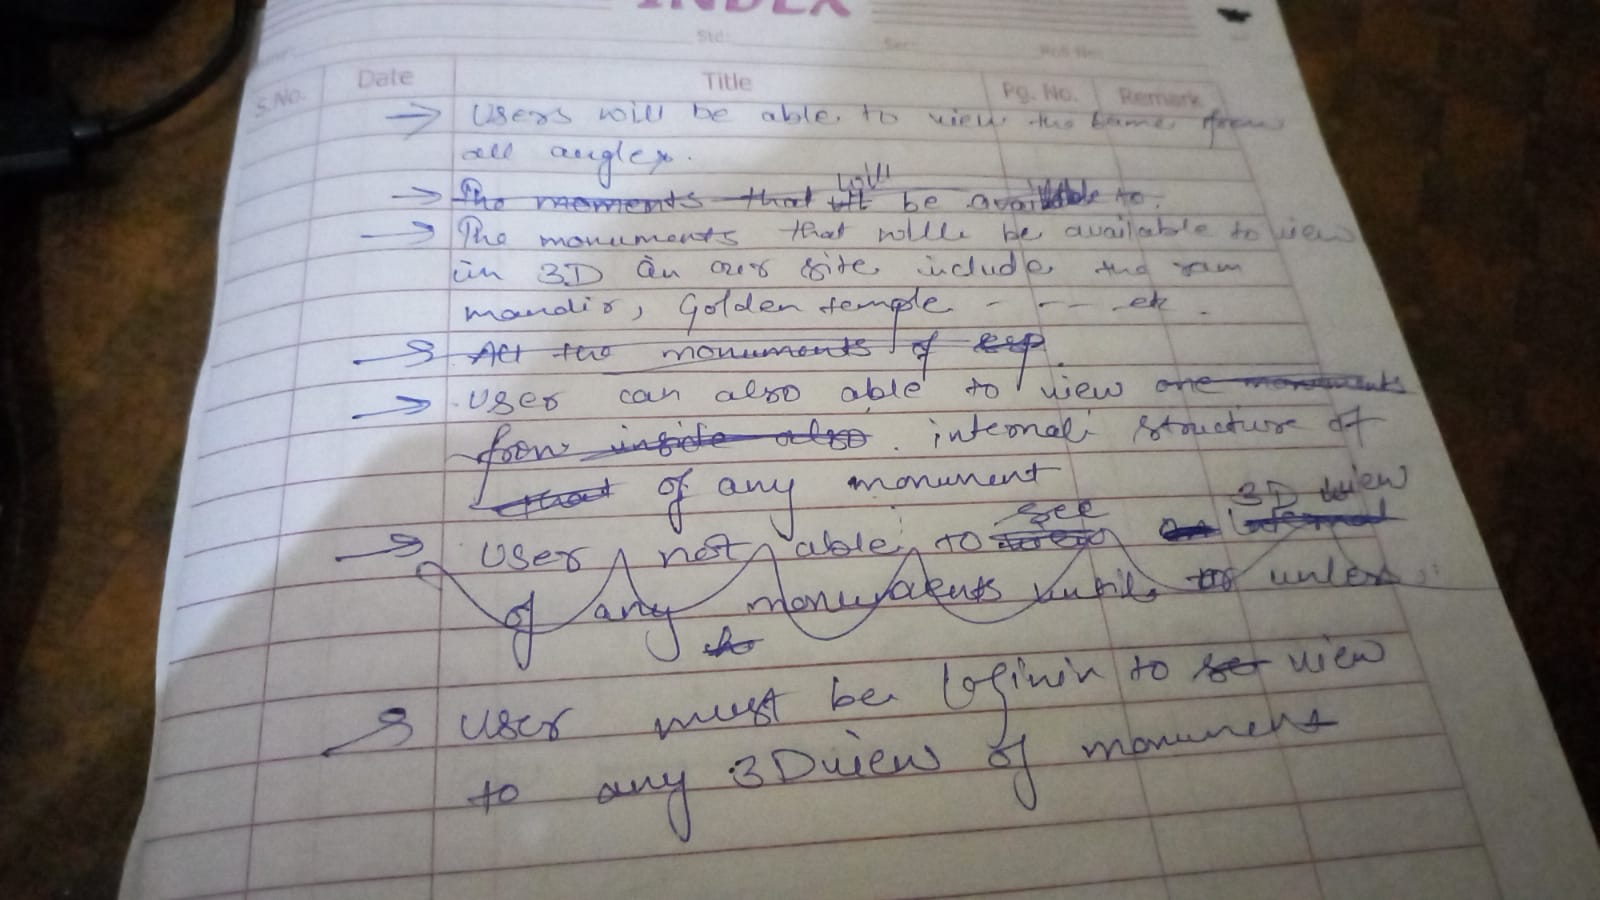 INDEX
Std:
S.No. Date Title Pg. No. Remark
→ Users will be able to view the same from
all angles.
→ The moments that will be available to.
→ The monuments that will be available to view
in 3D in our site include the ram
mandir, Golden temple - - - - etc.
→ All the monuments of
→ User can also able to view one monuments
from inside also. internal structure of
that of any monument
→ User not able to see 3D view
of any monuments until unless
→ User must be loginin to see view
to any 3D view of monument